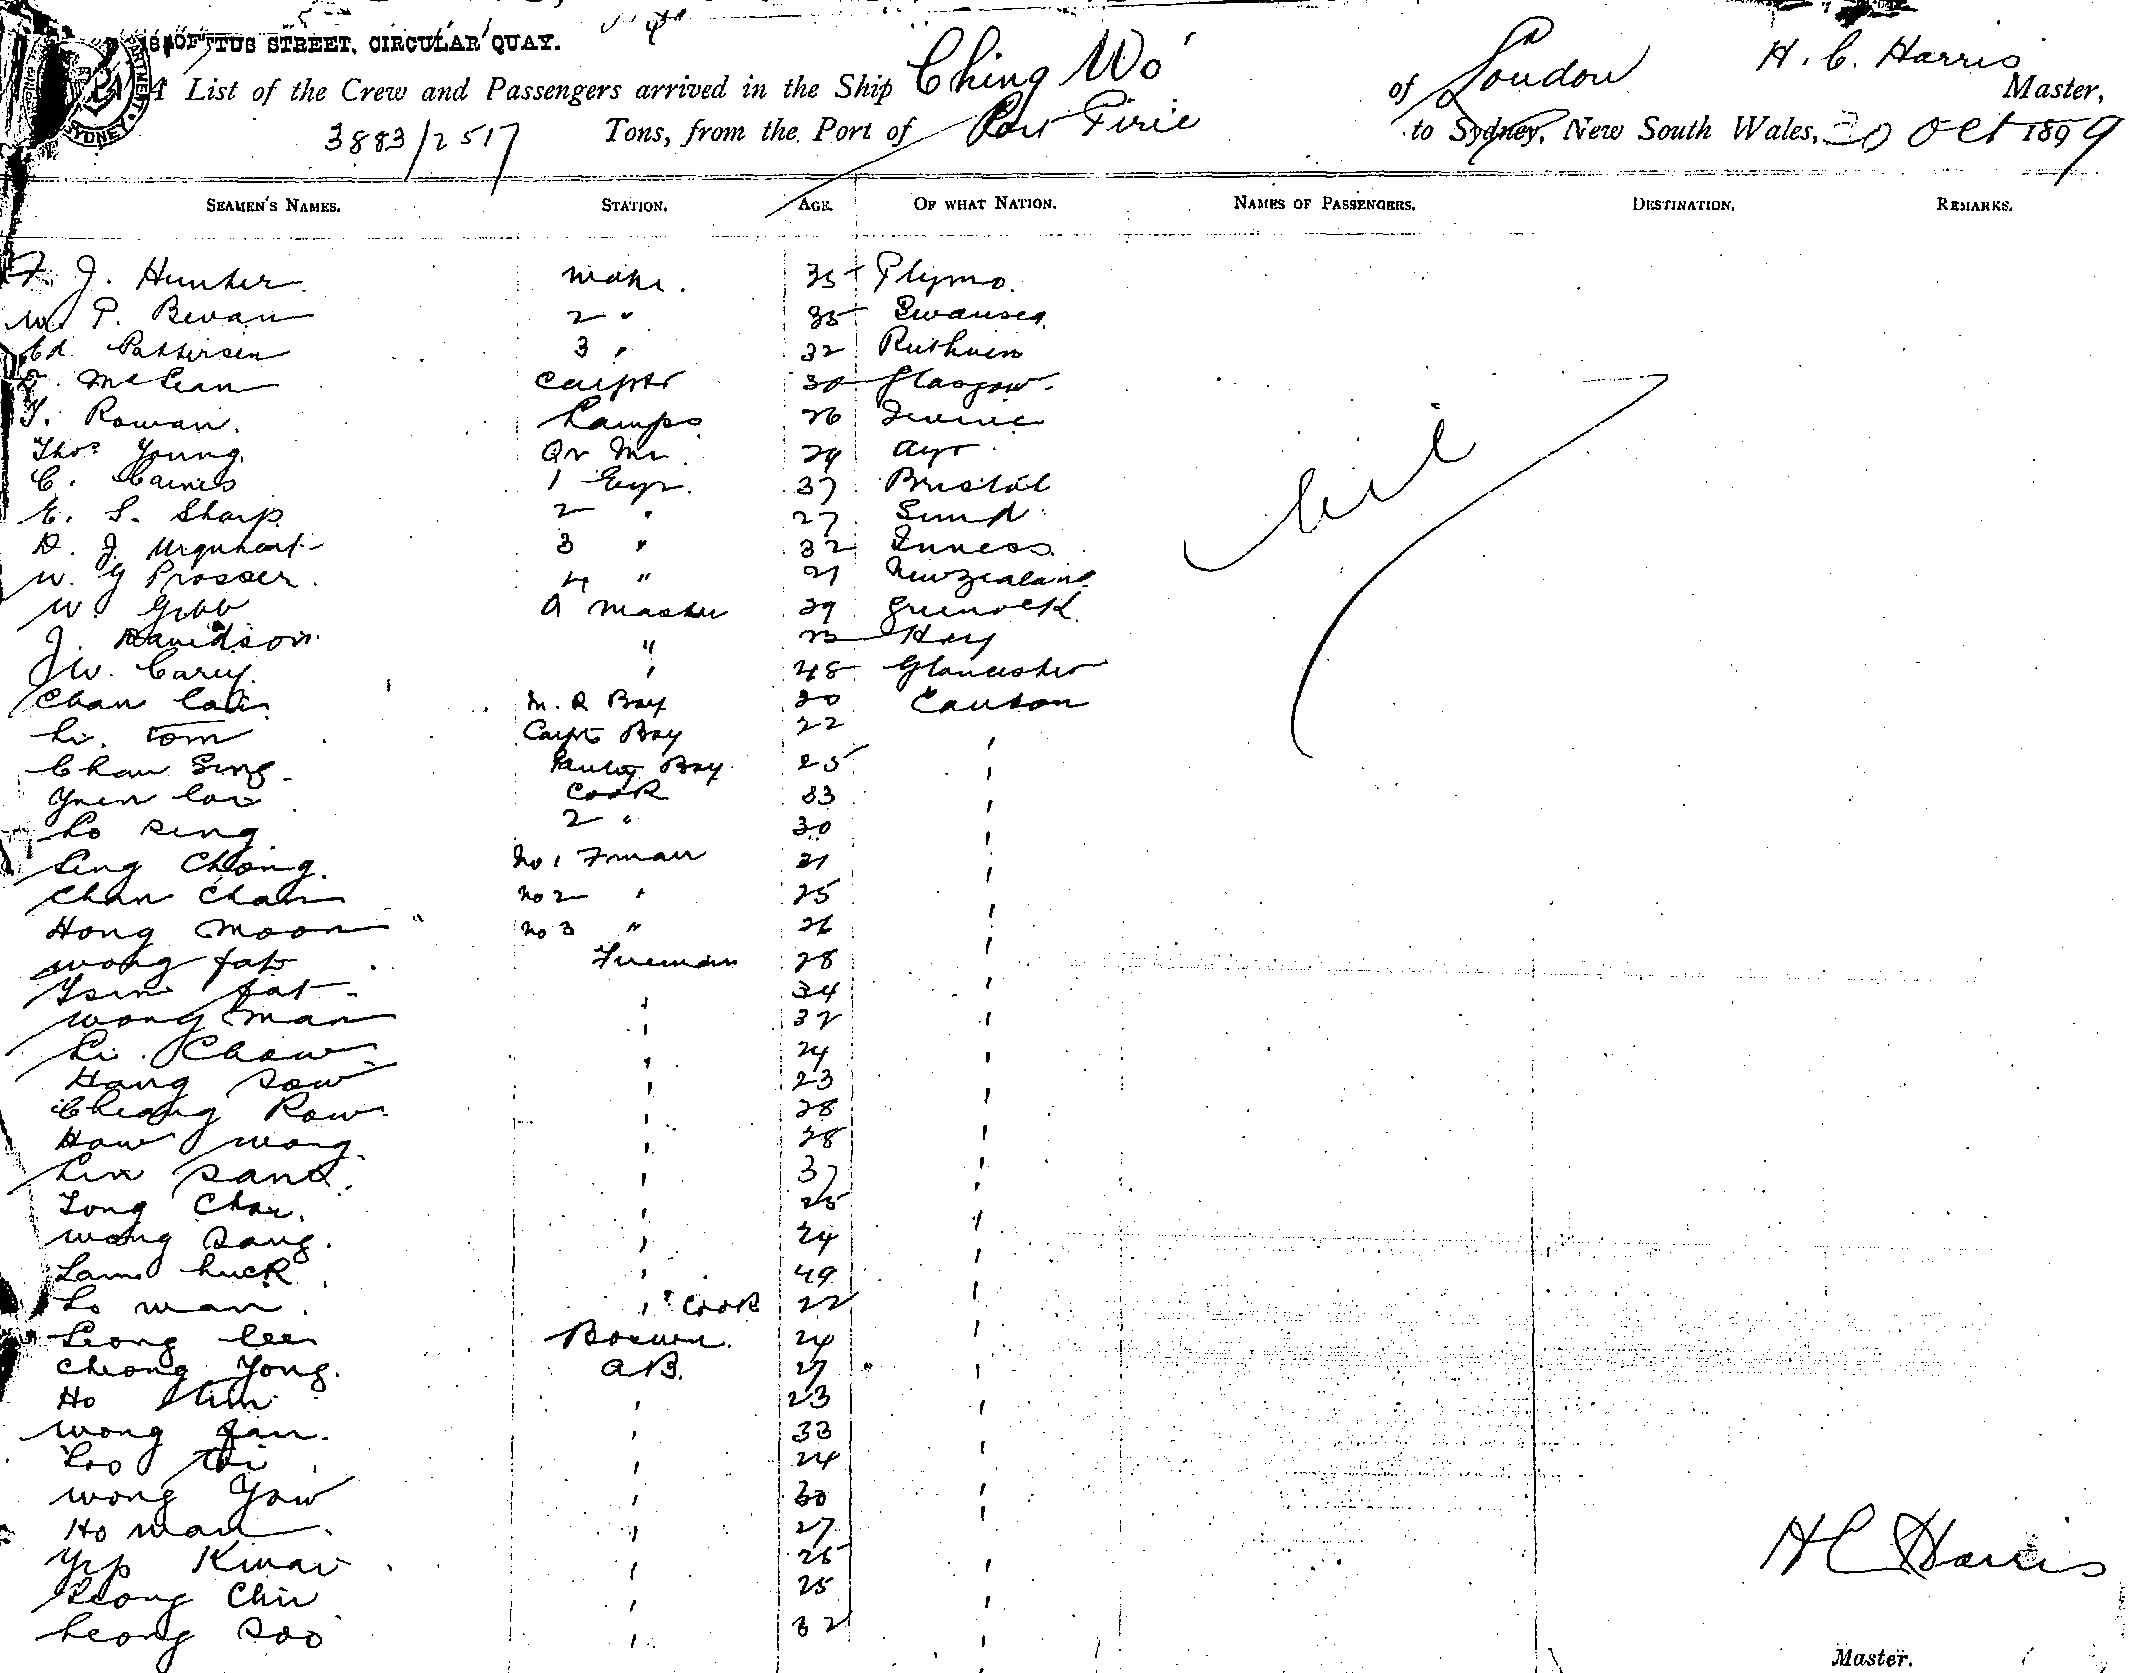 LOFTUS STREET, CIRCULAR QUAY.
A List of the Crew and Passengers arrived in the Ship Ching Wo of London H. C. Harris Master,
3883/2517 Tons, from the Port of Port Pirie to Sydney, New South Wales, 30 Oct 1899
SEAMEN'S NAMES. STATION. AGE. OF WHAT NATION. NAMES OF PASSENGERS. DESTINATION. REMARKS.
F. J. Hunter Mate. 35 Plymo.
W. P. Bevan 2 " 35 Swansea
Ed. Pattersen 3 " 32 Ruthven
McLean Carptr 30 Glasgow.
T. Rowan. Lamps 26 Irvine
Thos Young. Qr Mr. 29 Ayr
C. Cairns 1 Engr. 37 Bristol
E. S. Sharp 2 " 27 Sund
D. J. Urquhart 3 " 32 Inness
W. G Prosser. 4 " 21 New Zealand
W Gibb A Master 29 Greenock
J. Davidson " Hay
J W. Carey. " 48 Gloucester
Chan M. R Boy 20 Canton
Li. Tom Carpt Boy 22 "
Chan Sing. Pantry Boy 25 "
Yuen Cook 33 "
Lo Sing 2 " 30 "
Sing Chong. No 1 Fman 21 "
Chan Chan No 2 " 25 "
Hong Moon No 3 " 26 "
Wong Fat Fireman 28 "
Fat " 34 "
Wong Man " 32 "
Li. Chow " 24 "
Hang Sow " 23 "
Cheong Row " 28 "
How Wong. " 28 "
Lin Sang. " 37 "
Tong Choy. " 25 "
Wong Sang. " 24 "
Lam Luck " 49 "
Lo Man. " Cook 22 "
Leong Lee Boswn. 24 "
Cheong Yong. A.B. 27 "
Ho " 23 "
Wong " 33 "
Loo Toi " 24 "
Wong Yow " 30 "
Ho Man. " 27 "
Yip Kwai " 26 "
Leong Chu " 25 "
Leong Soo " 32 "
nil
H C Harris
Master.